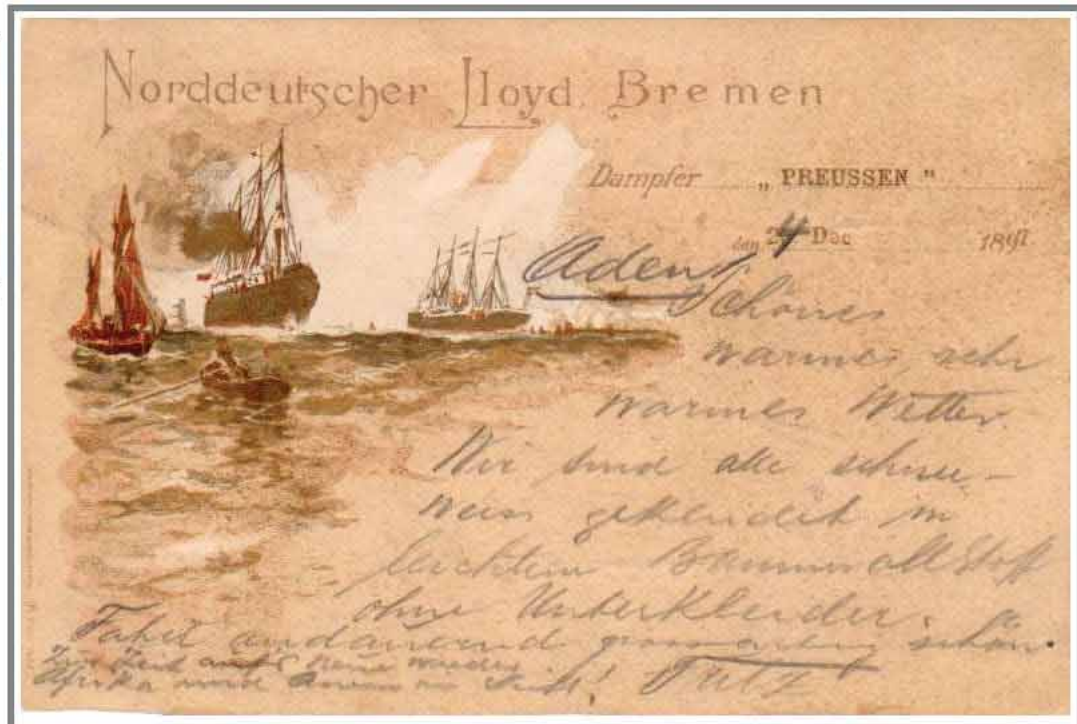 Norddeutscher Lloyd, Bremen
Dampfer „ PREUSSEN "
den 24 Dec 1897
Aden,
Schönes
warmes, sehr
warmes Wetter.
Wir sind alle schnee-
weiss gekleidet in
leichtem Baumwollstoff
ohne Unterkleider.
Fahrt andauernd grossartig schön.
Afrika in Sicht! Fritz